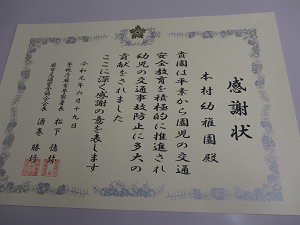 感謝状
本村幼稚園殿
貴園は平素から園児の交通
安全教育を積極的に推進され
幼児の交通事故防止に多大の
貢献をされました
ここに深く感謝の意を表します
令和元年六月十九日